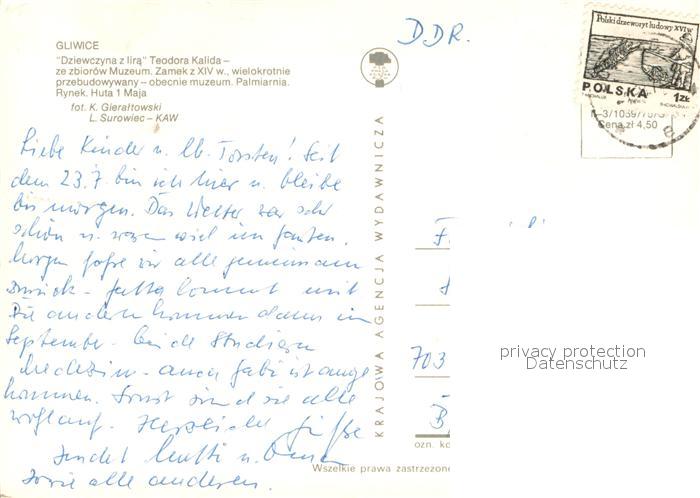 GLIWICE
"Dziewczyna z lirą" Teodora Kalida –
ze zbiorów Muzeum. Zamek z XIV w., wielokrotnie
przebudowywany – obecnie muzeum. Palmiarnia.
Rynek. Huta 1 Maja
fot. K. Gierałtowski
L. Surowiec – KAW
Liebe Kinder u. lb. Torsten! Seit
dem 23.7. bin ich hier u. bleibe
bis morgen. Das Wetter war sehr
schön u. waren viel im Garten.
Morgen wir alle gemeinsam
zurück – kommt mit
Die anderen kommen dann im
September – beide
Medizin – auch Gabi ist ange
kommen. Sonst sind sie alle
wohlauf. Herzliche Grüße
sendet Mutti u. Oma
sowie alle anderen.
KRAJOWA AGENCJA WYDAWNICZA
DDR.
Polski drzeworyt ludowy XVI w.
POLSKA
1 ZŁ
Cena zł 4,50
703
privacy protection
Datenschutz
ozn. ko
Wszelkie prawa zastrzeżone